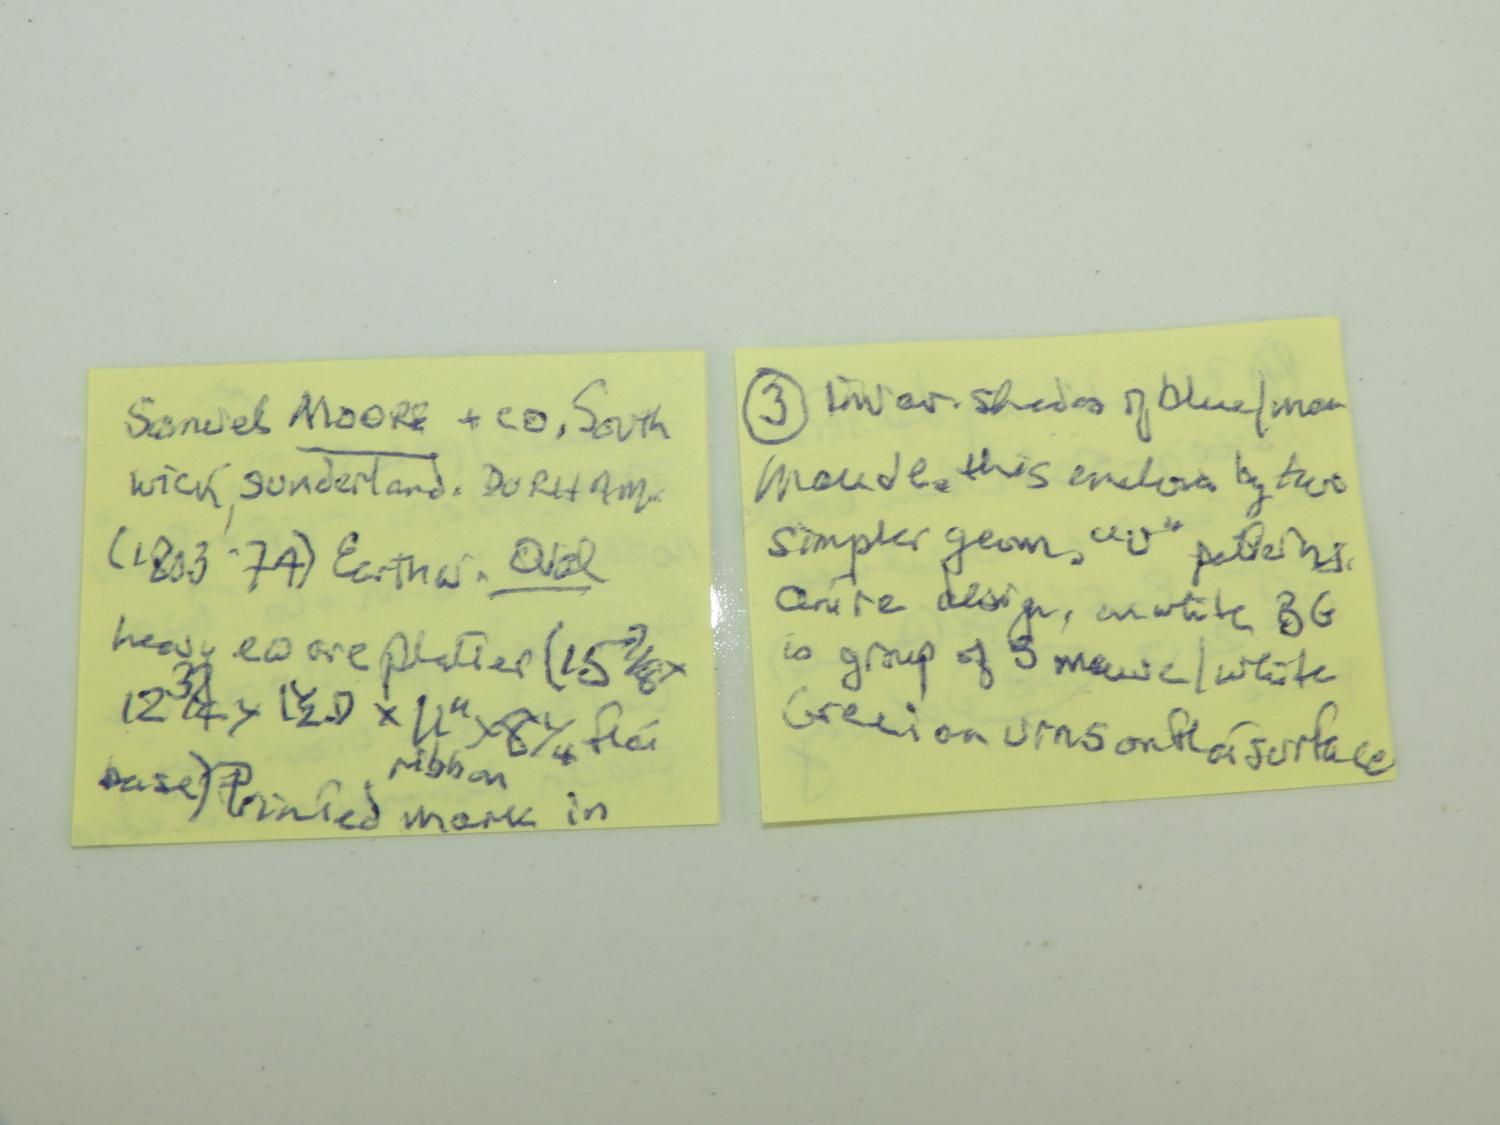 Samuel MOORE + CO, South
wick, Sunderland. DURHAM.
(1803-74) Earthw. Oval
heavy eware platter (15 7/8 x
12 3/4 x 1 1/2 D x 11" x 8 1/4 flat
base) Printed ribbon mark in
3 in var. shades of blue/
this enclosed by two
simpler geom, "v" patterns.
Centre design, on white BG
is group of 3 mauve/white
Grecian urns on flat surface